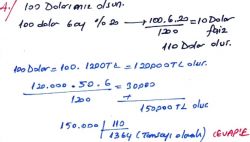 A/ 100 Dolarımız olsun.
100 dolar 6ay %20 → 100.6.20 / 1200 = 10 Dolar faiz
110 Dolar olur.
100 Dolar = 100. 1200TL = 120.000TL olur.
120.000 . 50 . 6 / 1200 = 30000
+
150000TL olur
150.000 | 110
1364 (Tamsayı olarak) CEVAP: E